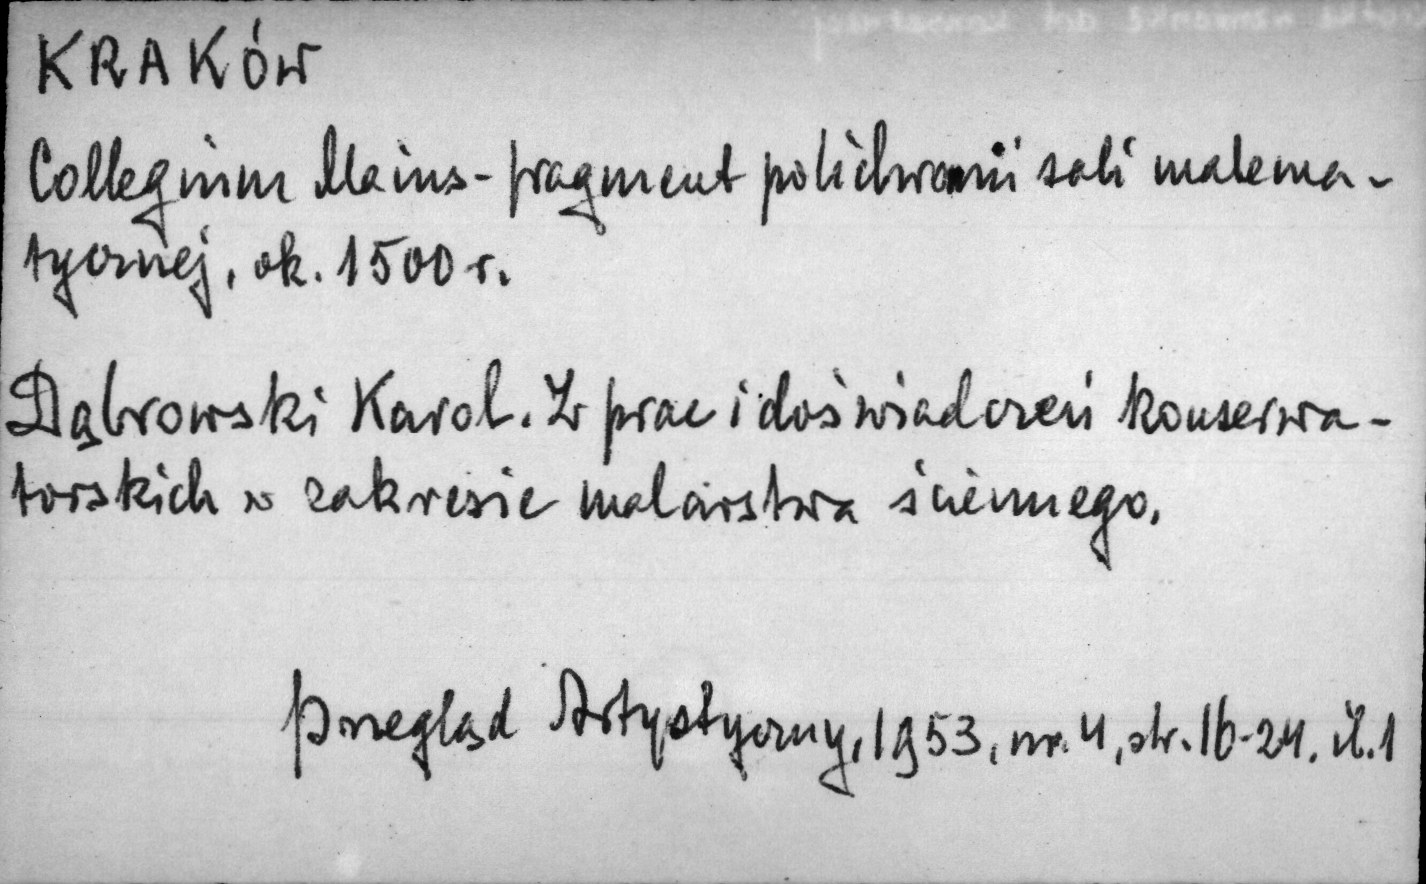 KRAKÓW
Collegium Maius - fragment polichromii sali matema-
tycznej, ok. 1500 r.
Dąbrowski Karol. Z prac i doświadczeń konserwa-
torskich w zakresie malarstwa ściennego.
Przegląd Artystyczny, 1953, nr. 4, str. 16-24. il. 1